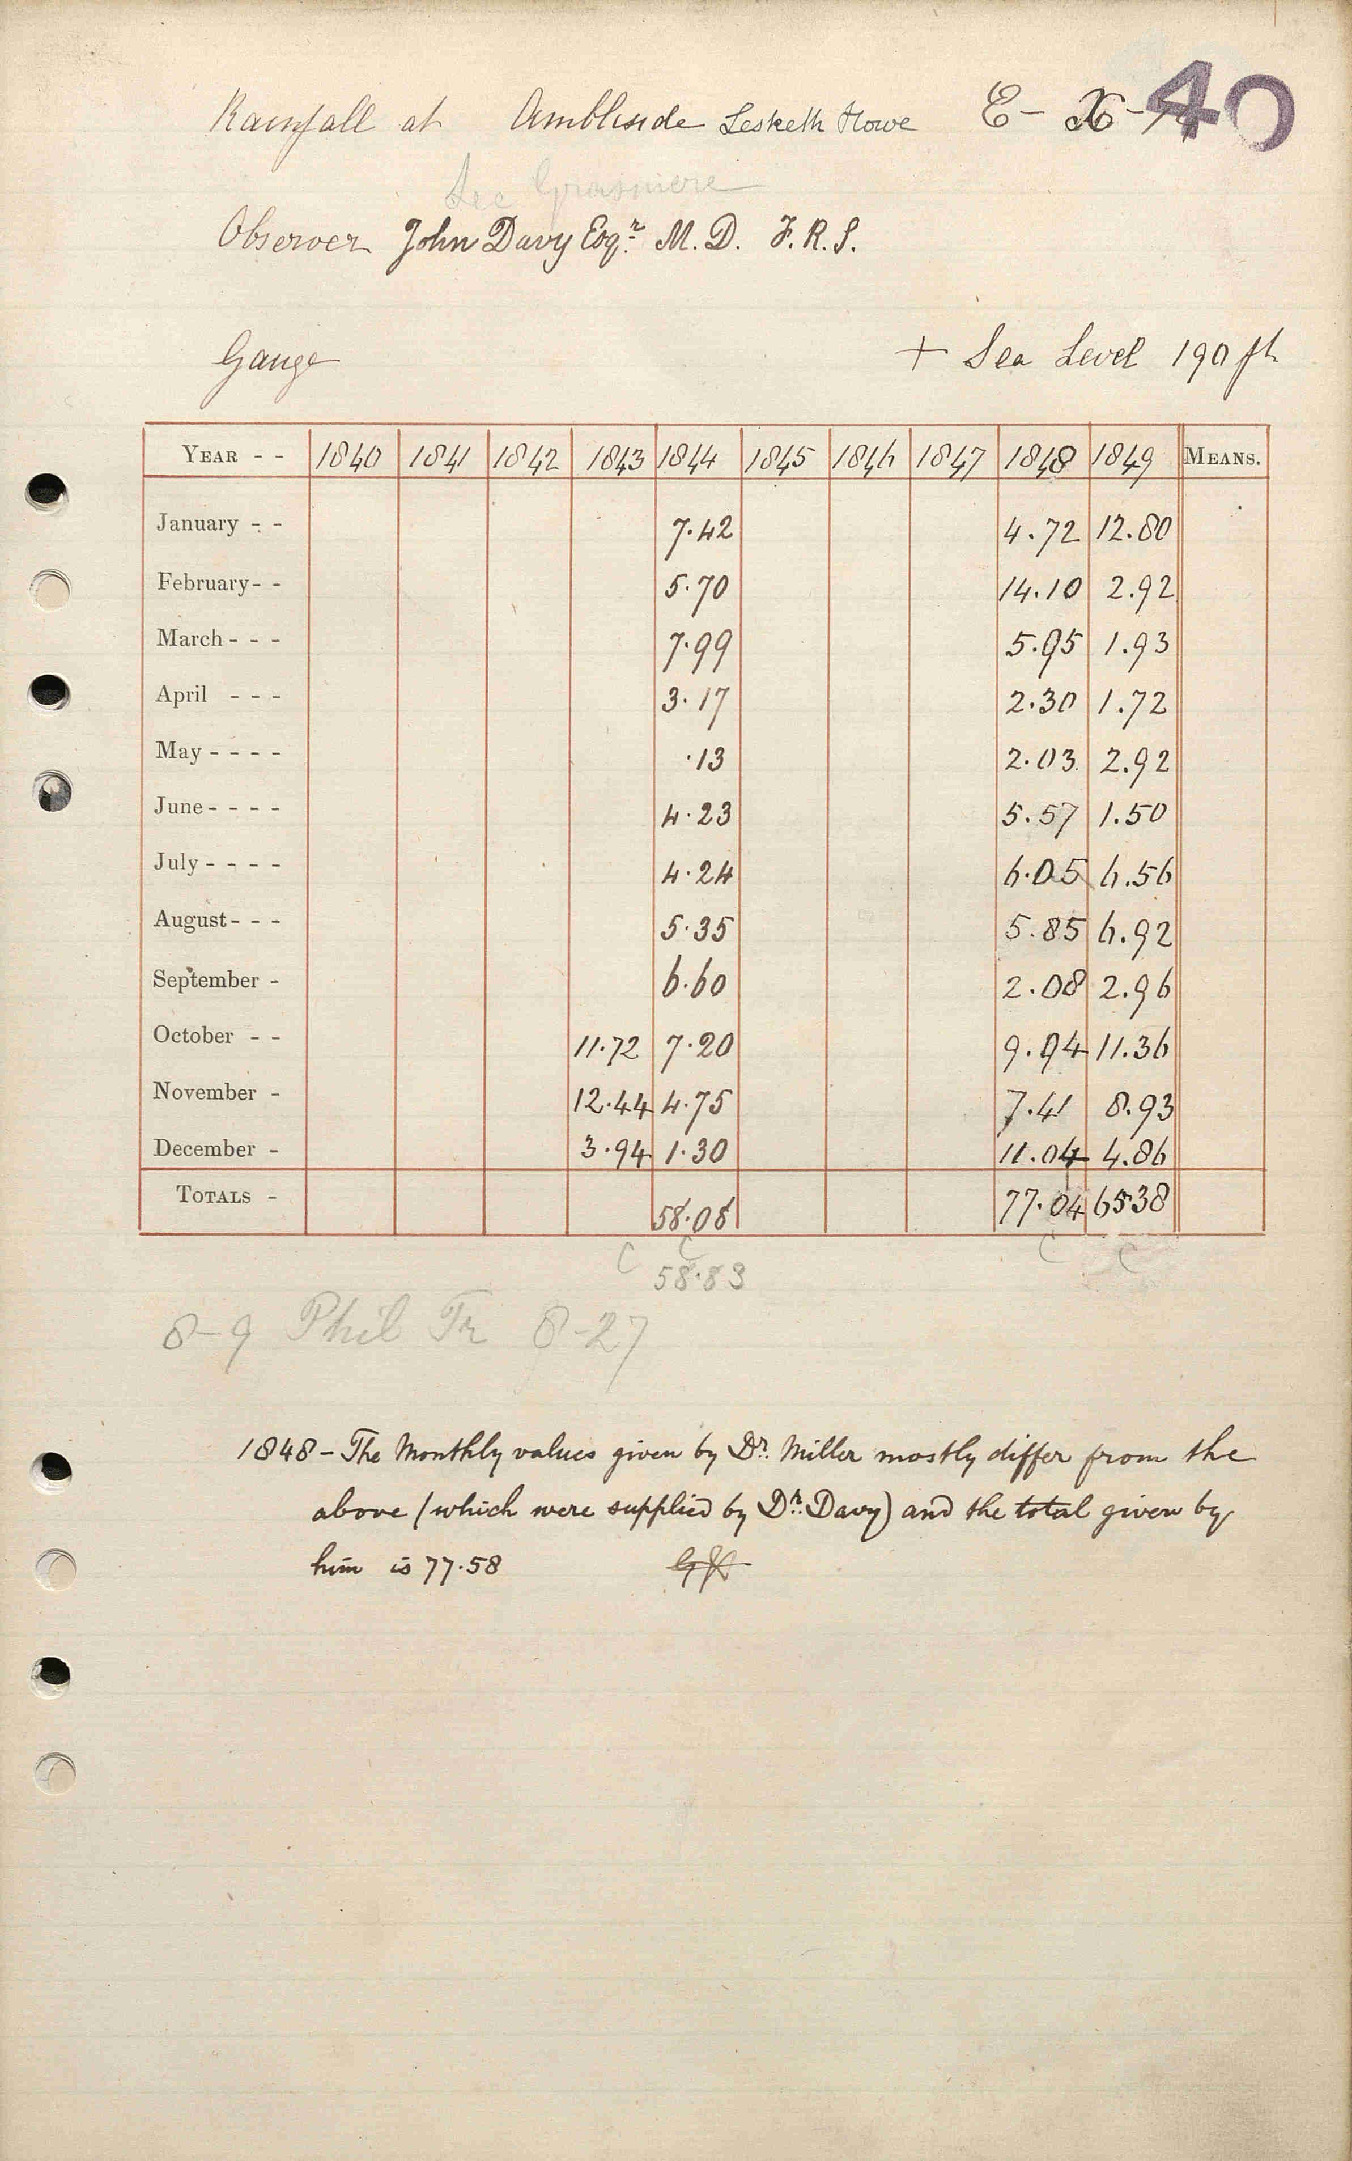 Rainfall at Ambleside Lesketh Howe E-X- 40
See Grasmere
Observer John Davy Esqr. M.D. F.R.S.
Gauge + Sea Level 190 ft
YEAR - - 1840 1841 1842 1843 1844 1845 1846 1847 1848 1849 MEANS.
January - - 7.42 4.72 12.80
February - - 5.70 14.10 2.92
March - - - 7.99 5.95 1.93
April - - - 3.17 2.30 1.72
May - - - - .13 2.03 2.92
June - - - - 4.23 5.57 1.50
July - - - - 4.24 6.05 6.56
August - - - 5.35 5.85 6.92
September - 6.60 2.08 2.96
October - - 11.72 7.20 9.94 11.36
November - 12.44 4.75 7.41 8.93
December - 3.94 1.30 11.04 4.86
TOTALS - 58.08 77.04 65.38
C C C C
58.83
8-9 Phil Tr 8-27
1848 - The Monthly values given by Dr. Miller mostly differ from the
above (which were supplied by Dr. Davy) and the total given by
him is 77.58